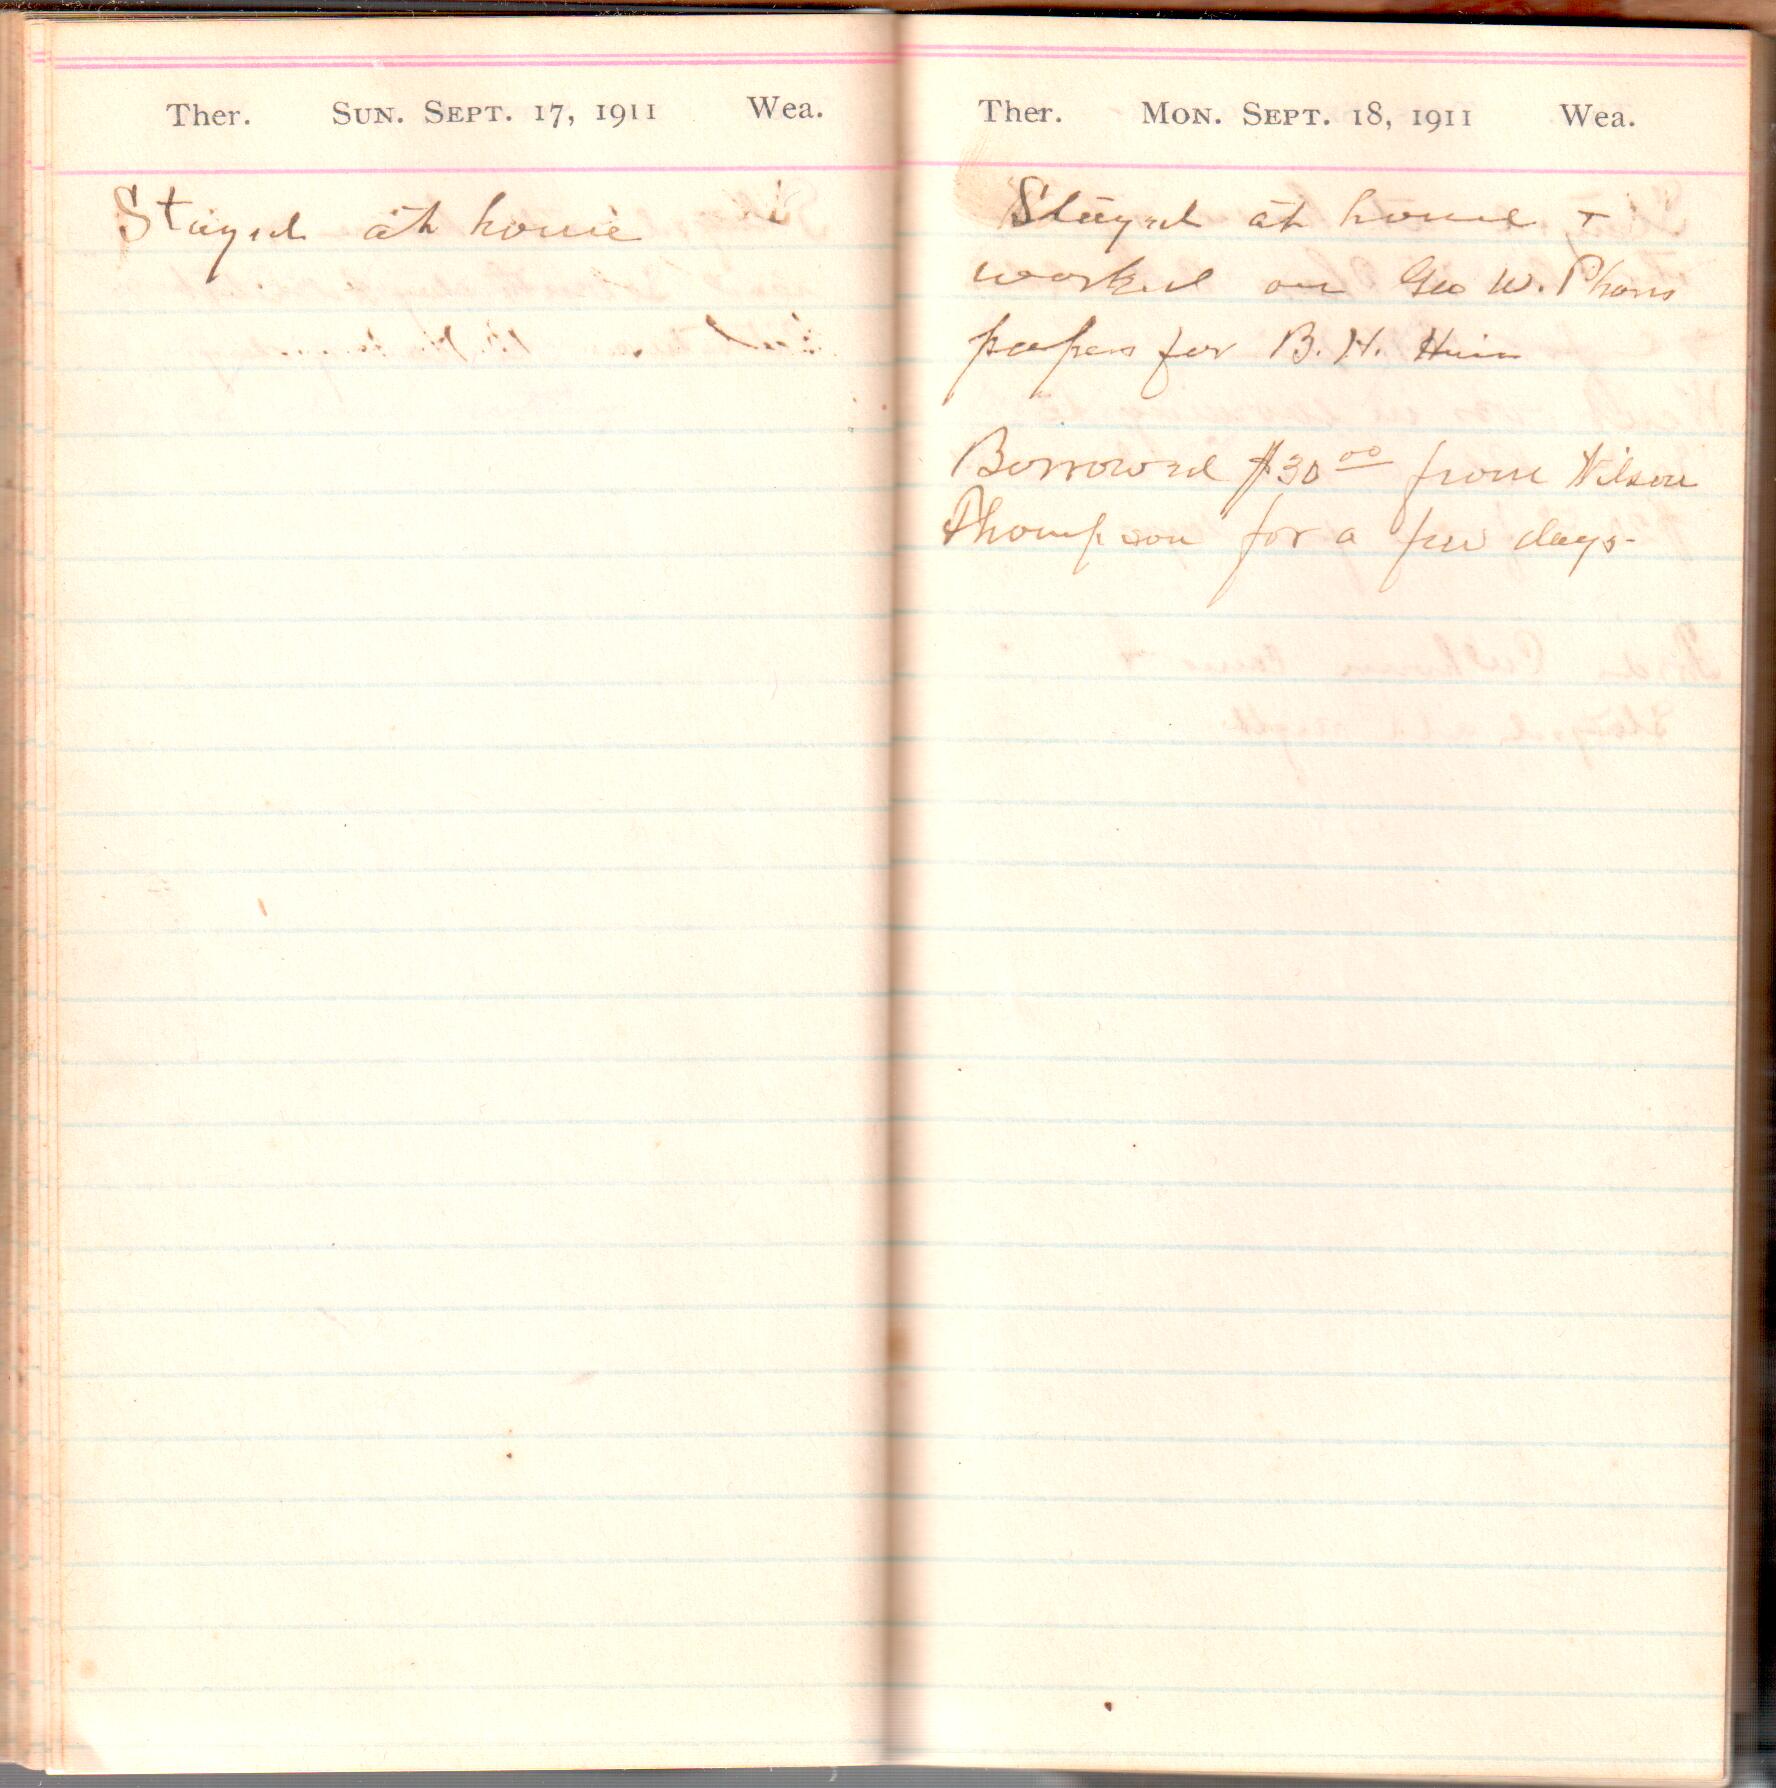 Ther. Sun. Sept. 17, 1911 Wea.
Stayed at home
Ther. Mon. Sept. 18, 1911 Wea.
Stayed at home +
worked on Geo W.
papers for B. H.
Borrowed $30 00 from Wilson
Thompson for a few days-